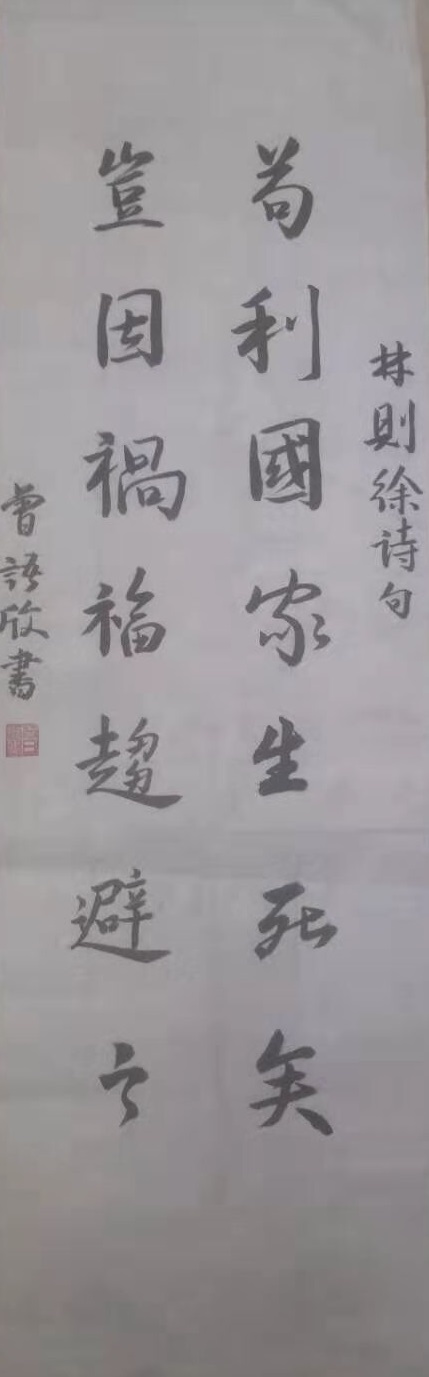 林則徐詩句
苟利國家生死矣
豈因禍福趨避之
曾語欣書